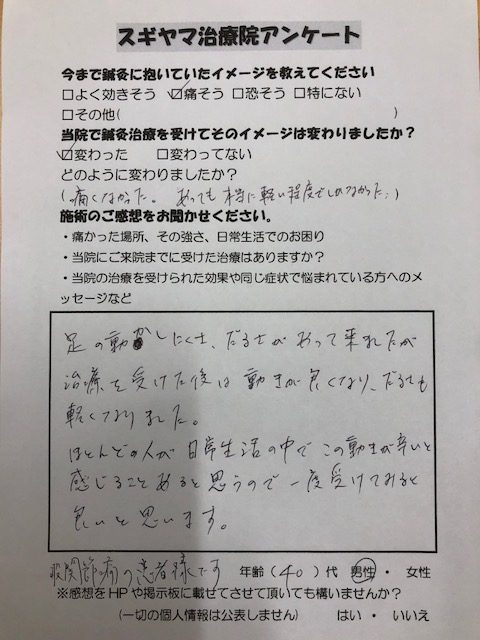 スギヤマ治療院アンケート
今まで鍼灸に抱いていたイメージを教えてください
□よく効きそう ☑痛そう □恐そう □特にない
□その他( )
当院で鍼灸治療を受けてそのイメージは変わりましたか?
☑変わった □変わってない
どのように変わりましたか?
(痛くなかった。あっても本当に軽い程度でしかなかった。)
施術のご感想をお聞かせください。
・痛かった場所、その強さ、日常生活でのお困り
・当院にご来院までに受けた治療はありますか?
・当院の治療を受けられた効果や同じ症状で悩まれている方へのメ
ッセージなど
足の動かしにくさ、だるさがあって来れたが
治療を受けた後は動きが良くなり、だるさも
軽くなりました。
ほとんどの人が日常生活の中でこの動きが辛いと
感じることあると思うので一度受けてみると
良いと思います。
股関節痛の患者様です 年齢(40)代 男性・ 女性
※感想をHPや掲示板に載せてさせて頂いても構いませんか?
(一切の個人情報は公表しません) はい ・ いいえ